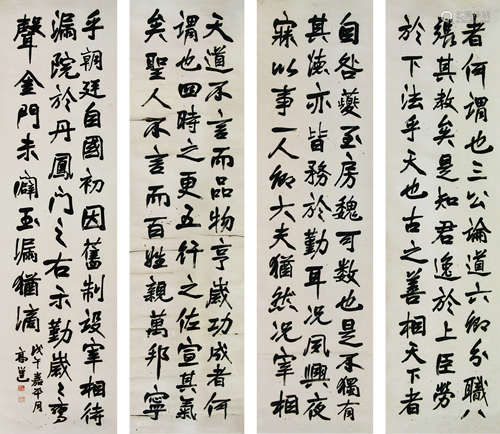 天道不言而品物亨歲功成者何
謂也四時之更五行之佐宣其氣
矣聖人不言而百姓親萬邦寧
者何謂也三公論道六卿分職八
張其教矣是知君逸於上臣勞
於下法乎天也古之善相天下者
自咎夔至房魏可數也是不獨有
其德亦皆務於勤耳况夙興夜
寐以事一人卿大夫猶然况宰相
乎朝廷自國初因舊制設宰相待
漏院於丹鳳門之右示勤歲々鸞
聲金門未闢玉漏猶滴
戊午嘉平月